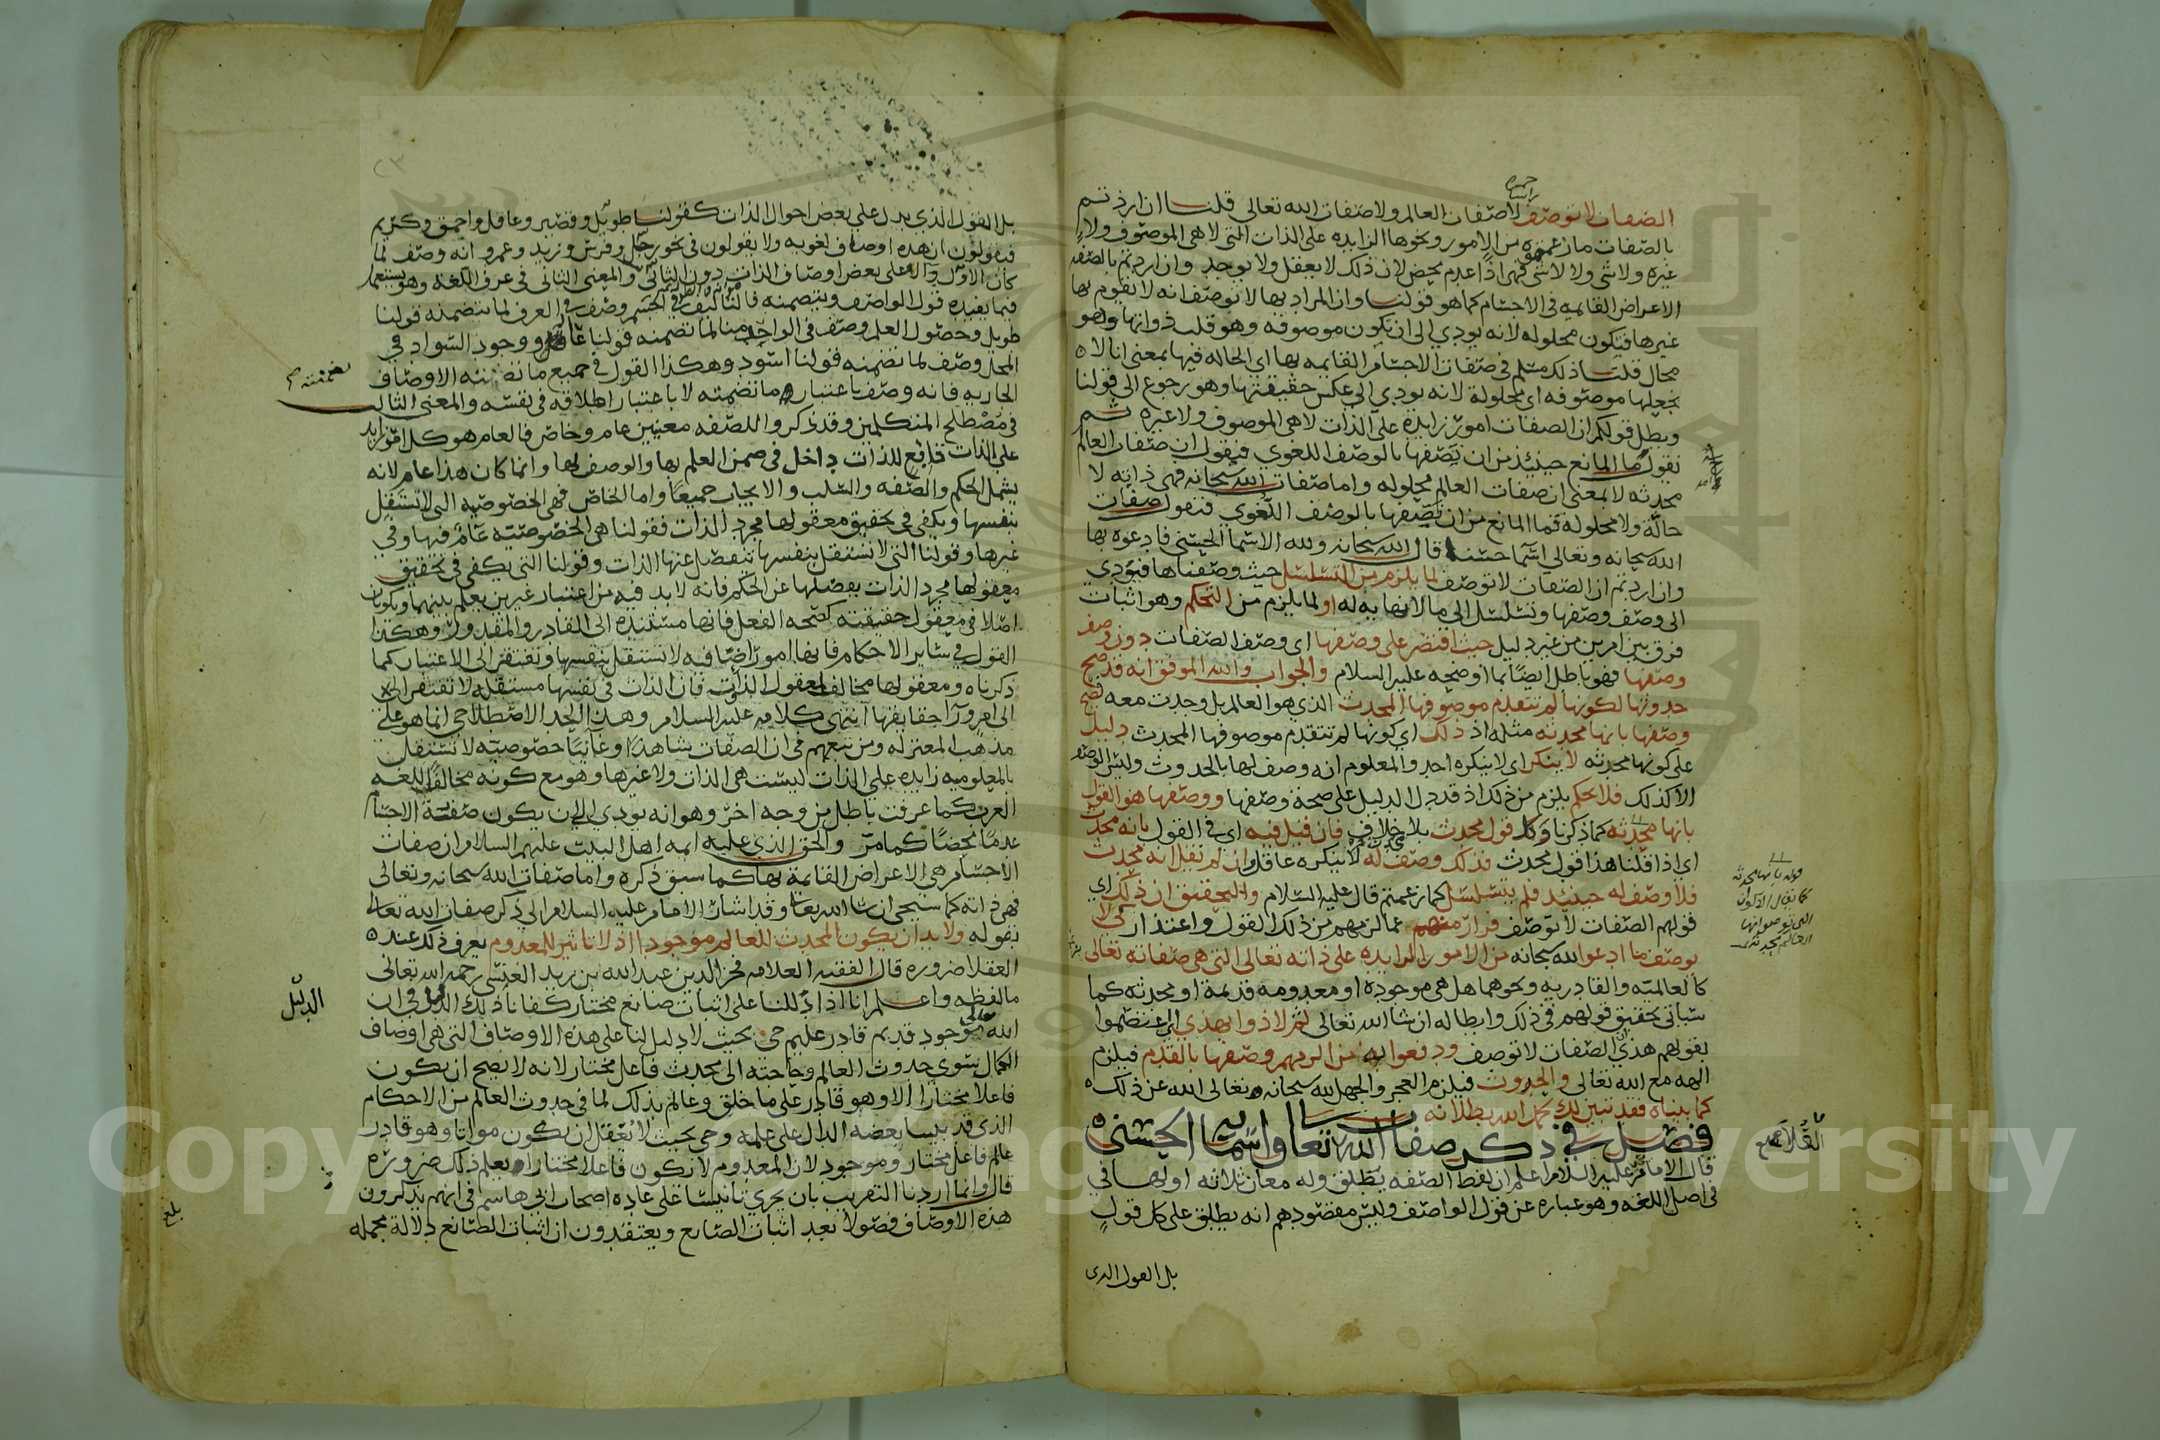 الصفات لا توصف لا صفات العالم ولا صفات الله تعالى قلنا ان اردتم
بالصفات ما زعمتموه من الامور ونحوها الزايده على الذات التي لا هي الموصوف ولا
غيره ولا شي ولا لا شي فهي اذا عدم محض لان ذلك لا يعقل ولا يوجد وان اردتم بالصفه
الاعراض القايمه في الاجسام كما هو قولنا وان المراد بها لا توصف انه لا يقوم بها
غيرها فيكون محلوله لانه يودي الى ان يكون موصوفه وهو قلب ذواتها وهو
محال قلنا ذلك مسلم في صفات الاجسام القايمه بها اي الحاله فيها بمعنى انا لا
نجعلها موصوفه اي محلولة لانه يودي الى عكس حقيقتها وهو رجوع الى قولنا
وبطل قولكم ان الصفات امور زايده على الذات لا هي الموصوف ولا غيره ثم
نقول ما المانع حينئذ من ان نصفها بالوصف اللغوي فيقول ان صفات العالم
محدثه لا بمعنى ان صفات العالم محلوله واما صفات الله سبحانه فهي ذاته لا
حالة ولا محلولة فما المانع من ان نصفها بالوصف اللغوي فنقول صفات
الله سبحانه وتعالى اسما حسنا قال الله سبحانه ولله الاسما الحسنى فادعوه بها
وان اردتم ان الصفات لا توصف لما يلزم من التسلسل حيث وصفناها فيودي
الى وصف وصفها وتسلسل الى ما لا نهايه له او لما يلزم من التحكم وهو اثبات
فرق بين امرين من غير دليل حيث اقتصر على وصفها اي وصف الصفات دون وصف
وصفها فهو باطل ايضا بما اوضحه عليه السلام والجواب والله الموفق انه قد صح
حدوثها لكونها لم تتقدم موصوفها المحدث الذي هو العالم بل وجدت معه فصح
وصفها بانها محدثه مثله اذ ذلك اي كونها لم تتقدم موصوفها المحدث دليل
على كونها محدثه لا ينكر اي لا ينكره احد والمعلوم انه وصف لها بالحدوث وليس الوصف
الا كذلك فلا تحكم يلزم من ذلك اذ قد دل الدليل على صحة وصفها ووصفها هو القول
بانها محدثه كما ذكرنا وكل قول محدث بلا خلاف فان قيل فيه اي في القول بانه محدث
اي اذا قلنا هذا قول محدث فذلك وصف له لا ينكره عاقل وان لم نقل انه محدث
فلا وصف له حينئذ فلم يتسلسل كما زعمتم قال عليه السلام والتحقيق ان ذلك اي
قولهم الصفات لا توصف فرار منهم عما لزمهم من ذلك القول واعتذار كي لا
يوصف ما ادعوا لله سبحانه من الامور الزايده على ذاته تعالى التي هي صفاته تعالى
كالعالميه والقادريه ونحوهما هل هي موجوده او معدومه قديمة او محدثه كما
سياتي تحقيق قولهم في ذلك وابطاله ان شا الله تعالى ثم لاذوا بهذي اي اعتصموا
بقولهم هذي الصفات لا توصف ودفعوا به من الزمهم وصفها بالقدم فيلزم
الهه مع الله تعالى والحدوث فيلزم العجز والجهل لله سبحانه وتعالى الله عن ذلك
كما بيناه فقد تبين لك بحمد الله بطلانه
فصل في ذكر صفات الله تعالى واسمائه الحسنى
قال الامام عليه السلام اعلم ان لفظ الصفه يطلق وله معان ثلاثه اولها في
اصل اللغه وهو عباره عن قول الواصف وليس مقصودهم انه يطلق على كل قول
بل القول الذي
قوله بانها محدثه
بل القول الذي يدل على بعض احوال الذات كقولنا طويل وقصير وعاقل واحمق وكريم
فيقولون ان هذه اوصاف لغويه ولا يقولون في نحو رجل وفرس وزيد وعمرو انه وصف لما
كان الاول دالا على بعض اوصاف الذات دون الثاني والمعنى الثاني في عرف اللغه وهو يستعمل
فيما يفيده قول الواصف ويتضمنه فالتاليف في الجسم وصف في العرف لما تضمنه قولنا
طويل وحصول العلم وصف في الواحد منا لما تضمنه قولنا عالم ووجود السواد في
المحل وصف لما تضمنه قولنا اسود وهكذا القول في جميع ما تضمنته الاوصاف
الجاريه فانه وصف باعتبار ما تضمنه لا باعتبار اطلاقه في نفسه والمعنى الثالث
في مصطلح المتكلمين وقد ذكروا للصفه معنيين عام وخاص فالعام هو كل امر زايد
على الذات تابع للذات داخل في ضمن العلم بها والوصف لها وانما كان هذا عام لانه
يشمل الحكم والصفه والسلب والايجاب جميعا واما الخاص فهي الخصوصيه التي لا تستقل
بنفسها ويكفي في تحقيق معقولها مجرد الذات فقولنا هي الخصوصيه عام فيها وفي
غيرها وقولنا التي لا تستقل بنفسها تنفصل عنها الذات وقولنا التي يكفي في تحقيق
معقولها مجرد الذات يفصلها عن الحكم فانه لا بد فيه من اعتبار غيرين يعلم بينهما ويكونان
اصلا في معقول حقيقته كصحه الفعل فانها مستنده الى القادر والمقدور وهكذا
القول في ساير الاحكام فانها امور اضافيه لا تستقل بنفسها وتفتقر الى الاعتبار كما
ذكرناه ومعقولها مخالف لمعقول الذات فان الذات في نفسها مستقله لا تفتقر الى
الى امر ورا حقايقها انتهى كلامه عليه السلام وهذا الحد الاصطلاحي انما هو على
مذهب المعتزله ومن تبعهم في ان الصفات شاهدا وغائبا خصوصيه لا تستقل
بالمعلوميه زايده على الذات ليست هي الذات ولا غيرها وهو مع كونه مخالفا للغه
العرب كما عرفت باطل من وجه اخر وهو انه يودي الى ان يكون صفة الاجسام
عدما محضا كما مر والحق الذي عليه ائمه اهل البيت عليهم السلام ان صفات
الاجسام هي الاعراض القايمة بها كما سبق ذكره واما صفات الله سبحانه وتعالى
فهي ذاته كما سيجي ان شا الله تعالى وقد اشار الامام عليه السلام الى ذكر صفات الله تعالى
بقوله ولا بد ان يكون المحدث للعالم موجودا اذ لا تاثير للمعدوم يعرف ذلك عند
العقلا ضروره قال الفقيه العلامه فخر الدين عبد الله بن زيد العنسي رحمه الله تعالى
ما لفظه واعلم انا اذا دللنا على اثبات صانع مختار كفانا ذلك الدليل في ان
الله موجود قديم قادر عليم حي بحيث لا دليل لنا على هذه الاوصاف التي هي اوصاف
الكمال سوى حدوث العالم وحاجته الى محدث فاعل مختار لانه لا يصح ان يكون
فاعلا مختارا الا وهو قادر على ما خلق وعالم بذلك لما في حدوث العالم من الاحكام
الذي قد بينا بعضه الدال على علمه وحي بحيث لا يعقل ان يكون مواتا وهو قادر
عالم فاعل مختار وموجود لان المعدوم لا يكون فاعلا مختارا يعلم ذلك ضروره
قال وانما اردنا التقريب بان يجري تانيسا على عاده اصحاب ابي هاشم في انهم يذكرون
هذه الاوصاف فصولا بعد اثبات الصانع ويعتقدون ان اثبات الصانع دلالة مجمله
الدليل
بلغ